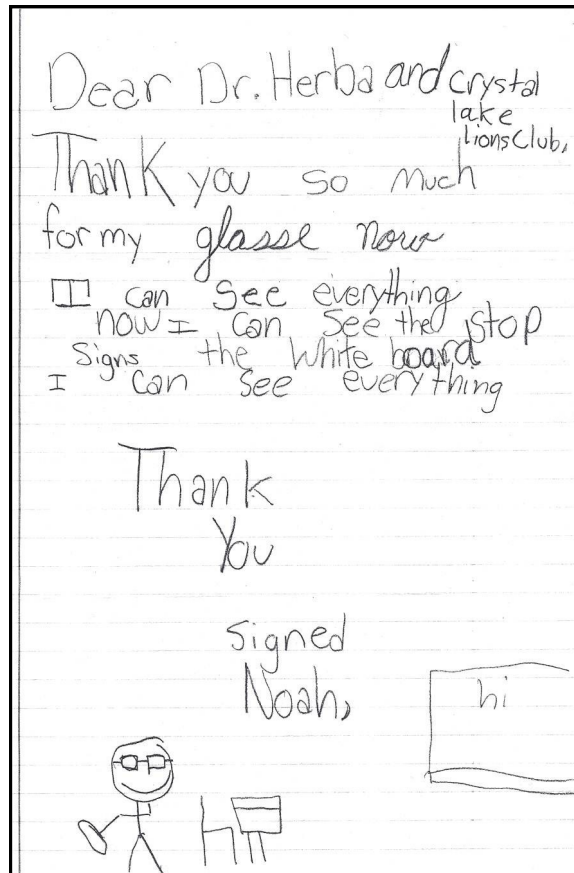 Dear Dr. Herba and crystal
lake
lions Club,
Thank you so much
for my glasse now
I can see everything
now I can see the stop
signs the white board
I can see everything
Thank
You
signed
Noah,
hi